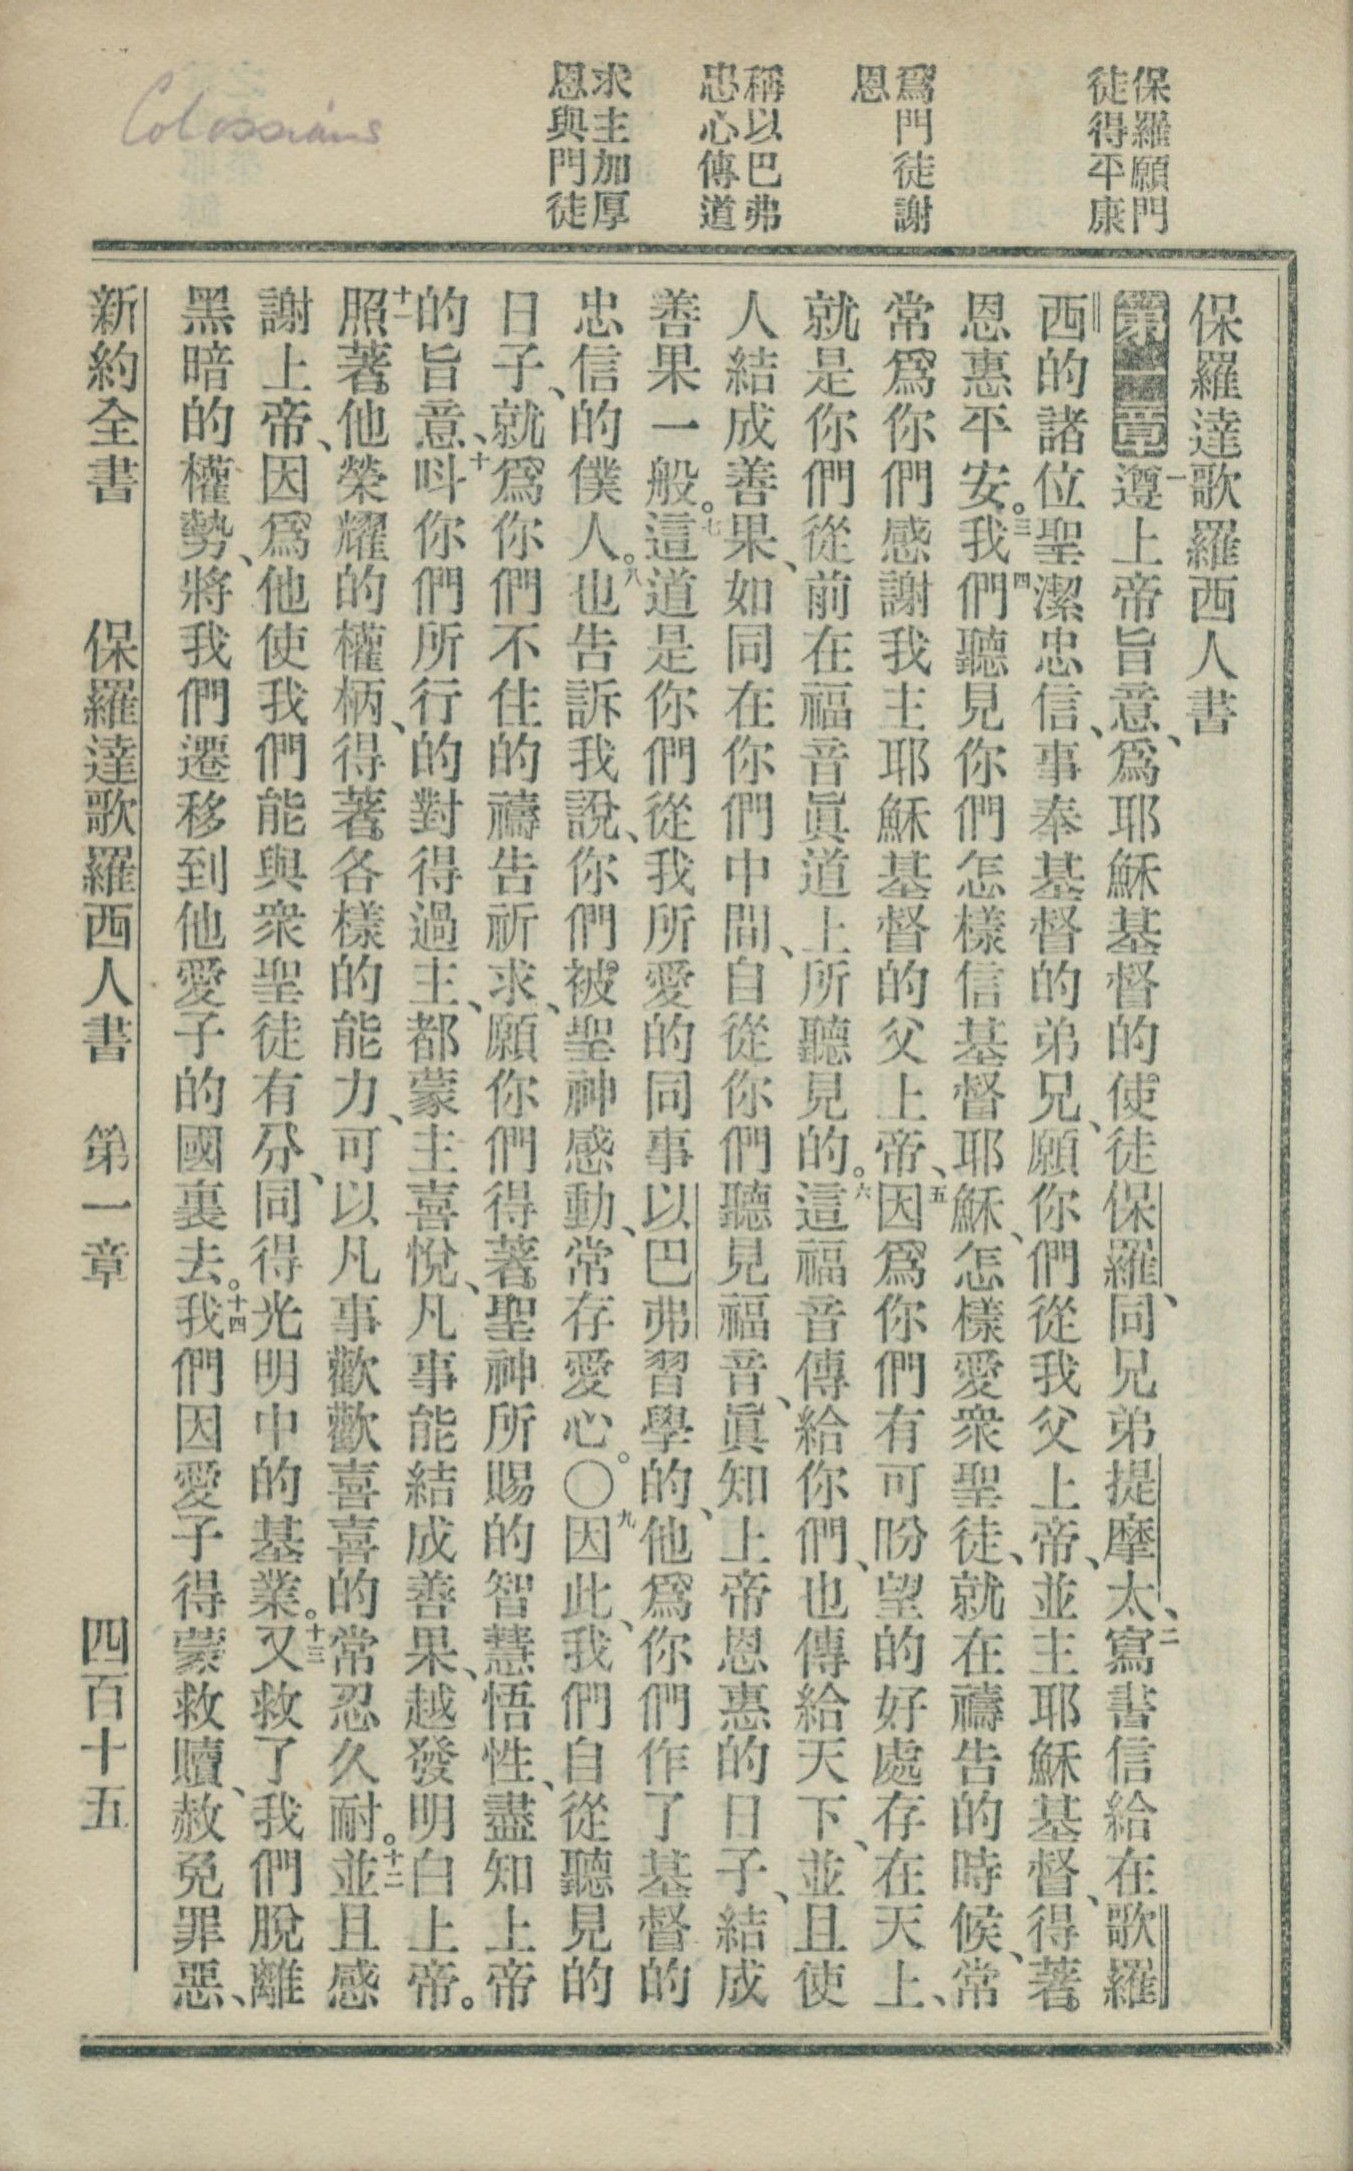 Colossians
保羅願門
徒得平康
爲門徒謝
恩
稱以巴弗
忠心傳道
求主加厚
恩與門徒
保羅達歌羅西人書
第一章 一遵上帝旨意、爲耶穌基督的使徒保羅、同兄弟提摩太、二寫書信給在歌羅
西的諸位聖潔忠信、事奉基督的弟兄、願你們從我父上帝、並主耶穌基督、得著
恩惠平安。三我們四聽見你們怎樣信基督耶穌、怎樣愛衆聖徒、就在禱告的時候、常
常爲你們感謝我主耶穌基督的父上帝、五因爲你們有可盼望的好處存在天上、
就是你們從前在福音眞道上所聽見的。六這福音傳給你們、也傳給天下、並且使
人結成善果、如同在你們中間、自從你們聽見福音、眞知上帝恩惠的日子、結成
善果一般。七這道是你們從我所愛的同事以巴弗習學的、他爲你們作了基督的
忠信的僕人。八也告訴我說、你們被聖神感動、常存愛心。〇九因此、我們自從聽見的
日子、就爲你們不住的禱告祈求、願你們得著聖神所賜的智慧悟性、盡知上帝
的旨意、十呌你們所行的對得過主、都蒙主喜悅、凡事能結成善果、越發明白上帝。
十一照著他榮耀的權柄、得著各樣的能力、可以凡事歡歡喜喜的常忍久耐。十二並且感
謝上帝、因爲他使我們能與衆聖徒有分、同得光明中的基業。十三又救了我們脫離
黑暗的權勢、將我們遷移到他愛子的國裏去。十四我們因愛子得蒙救贖、赦免罪惡、
新約全書 保羅達歌羅西人書 第一章 四百十五